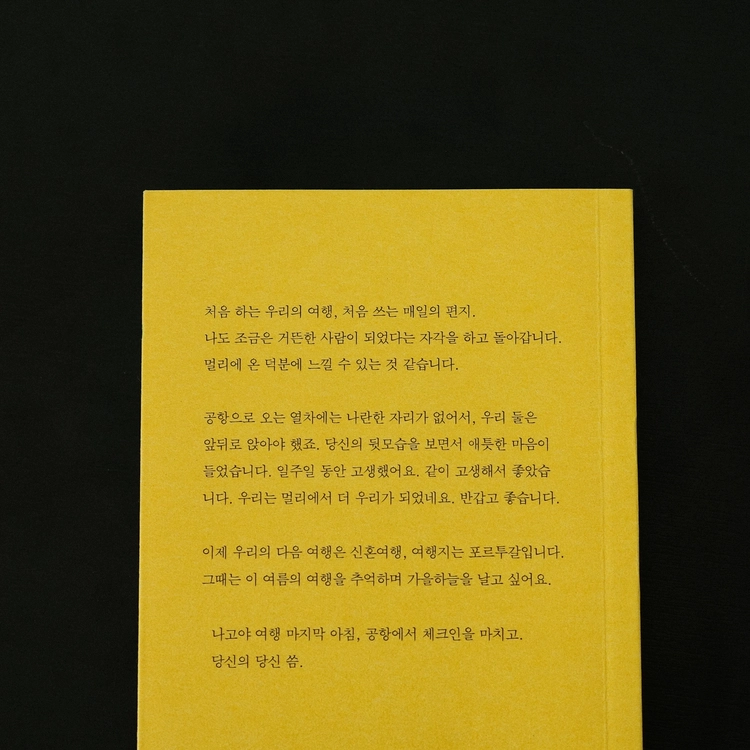 처음 하는 우리의 여행, 처음 쓰는 매일의 편지.
나도 조금은 거뜬한 사람이 되었다는 자각을 하고 돌아갑니다.
멀리에 온 덕분에 느낄 수 있는 것 같습니다.
공항으로 오는 열차에는 나란한 자리가 없어서, 우리 둘은
앞뒤로 앉아야 했죠. 당신의 뒷모습을 보면서 애틋한 마음이
들었습니다. 일주일 동안 고생했어요. 같이 고생해서 좋았습
니다. 우리는 멀리에서 더 우리가 되었네요. 반갑고 좋습니다.
이제 우리의 다음 여행은 신혼여행, 여행지는 포르투갈입니다.
그때는 이 여름의 여행을 추억하며 가을하늘을 날고 싶어요.
나고야 여행 마지막 아침, 공항에서 체크인을 마치고.
당신의 당신 씀.